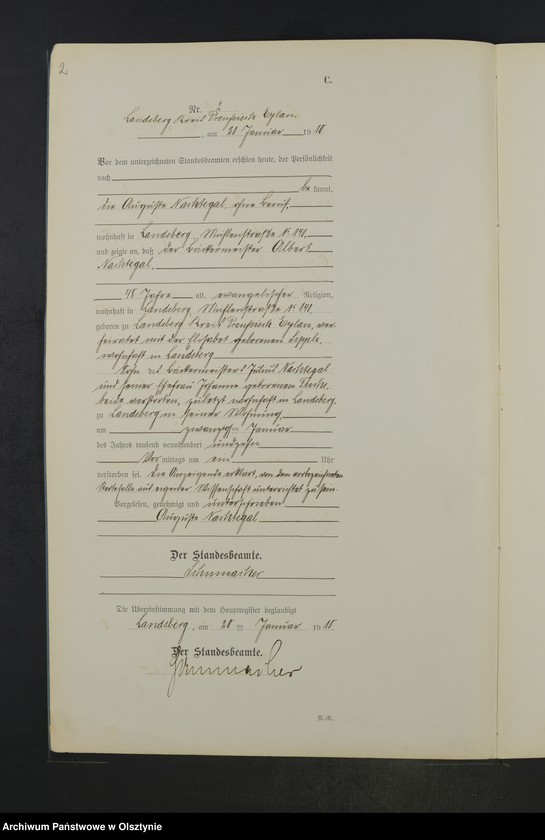 2
C.
Nr. 2
Landsberg Kreis Preußisch Eylau
, am 20 Januar 1910.
Vor dem unterzeichneten Standesbeamten erschien heute, der Persönlichkeit
nach
be kannt,
die Auguste Nachtegal, ohne Beruf,
wohnhaft in Landsberg, Mühlenstraße Nr. 141,
und zeigte an, daß der Bäckermeister Albert
Nachtegal,
48 Jahre alt, evangelischer Religion,
wohnhaft in Landsberg Mühlenstraße Nr. 141,
geboren zu Landsberg Kreis Preußisch Eylau, ver-
heiratet mit der Elisabet geborenen
wohnhaft in Landsberg
Sohn des Bäckermeisters Julius Nachtegal
und seiner Ehefrau Johanne geborenen
beide verstorben, zuletzt wohnhaft in Landsberg,
zu Landsberg in seiner Wohnung
am zwanzigsten Januar
des Jahres tausend neunhundert undzehn
Vor mittags um ein Uhr
verstorben sei. Die Anzeigende erklärt, von dem vorbezeichneten
Sterbefalle aus eigener Wissenschaft unterrichtet zu sein.
Vorgelesen, genehmigt und unterschrieben
Auguste Nachtegal
Der Standesbeamte.
Schumacher
Die Übereinstimmung mit dem Hauptregister beglaubigt
Landsberg, am 20 ten Januar 1910.
Der Standesbeamte.
Schumacher
R.-R.
Archiwum Państwowe w Olsztynie